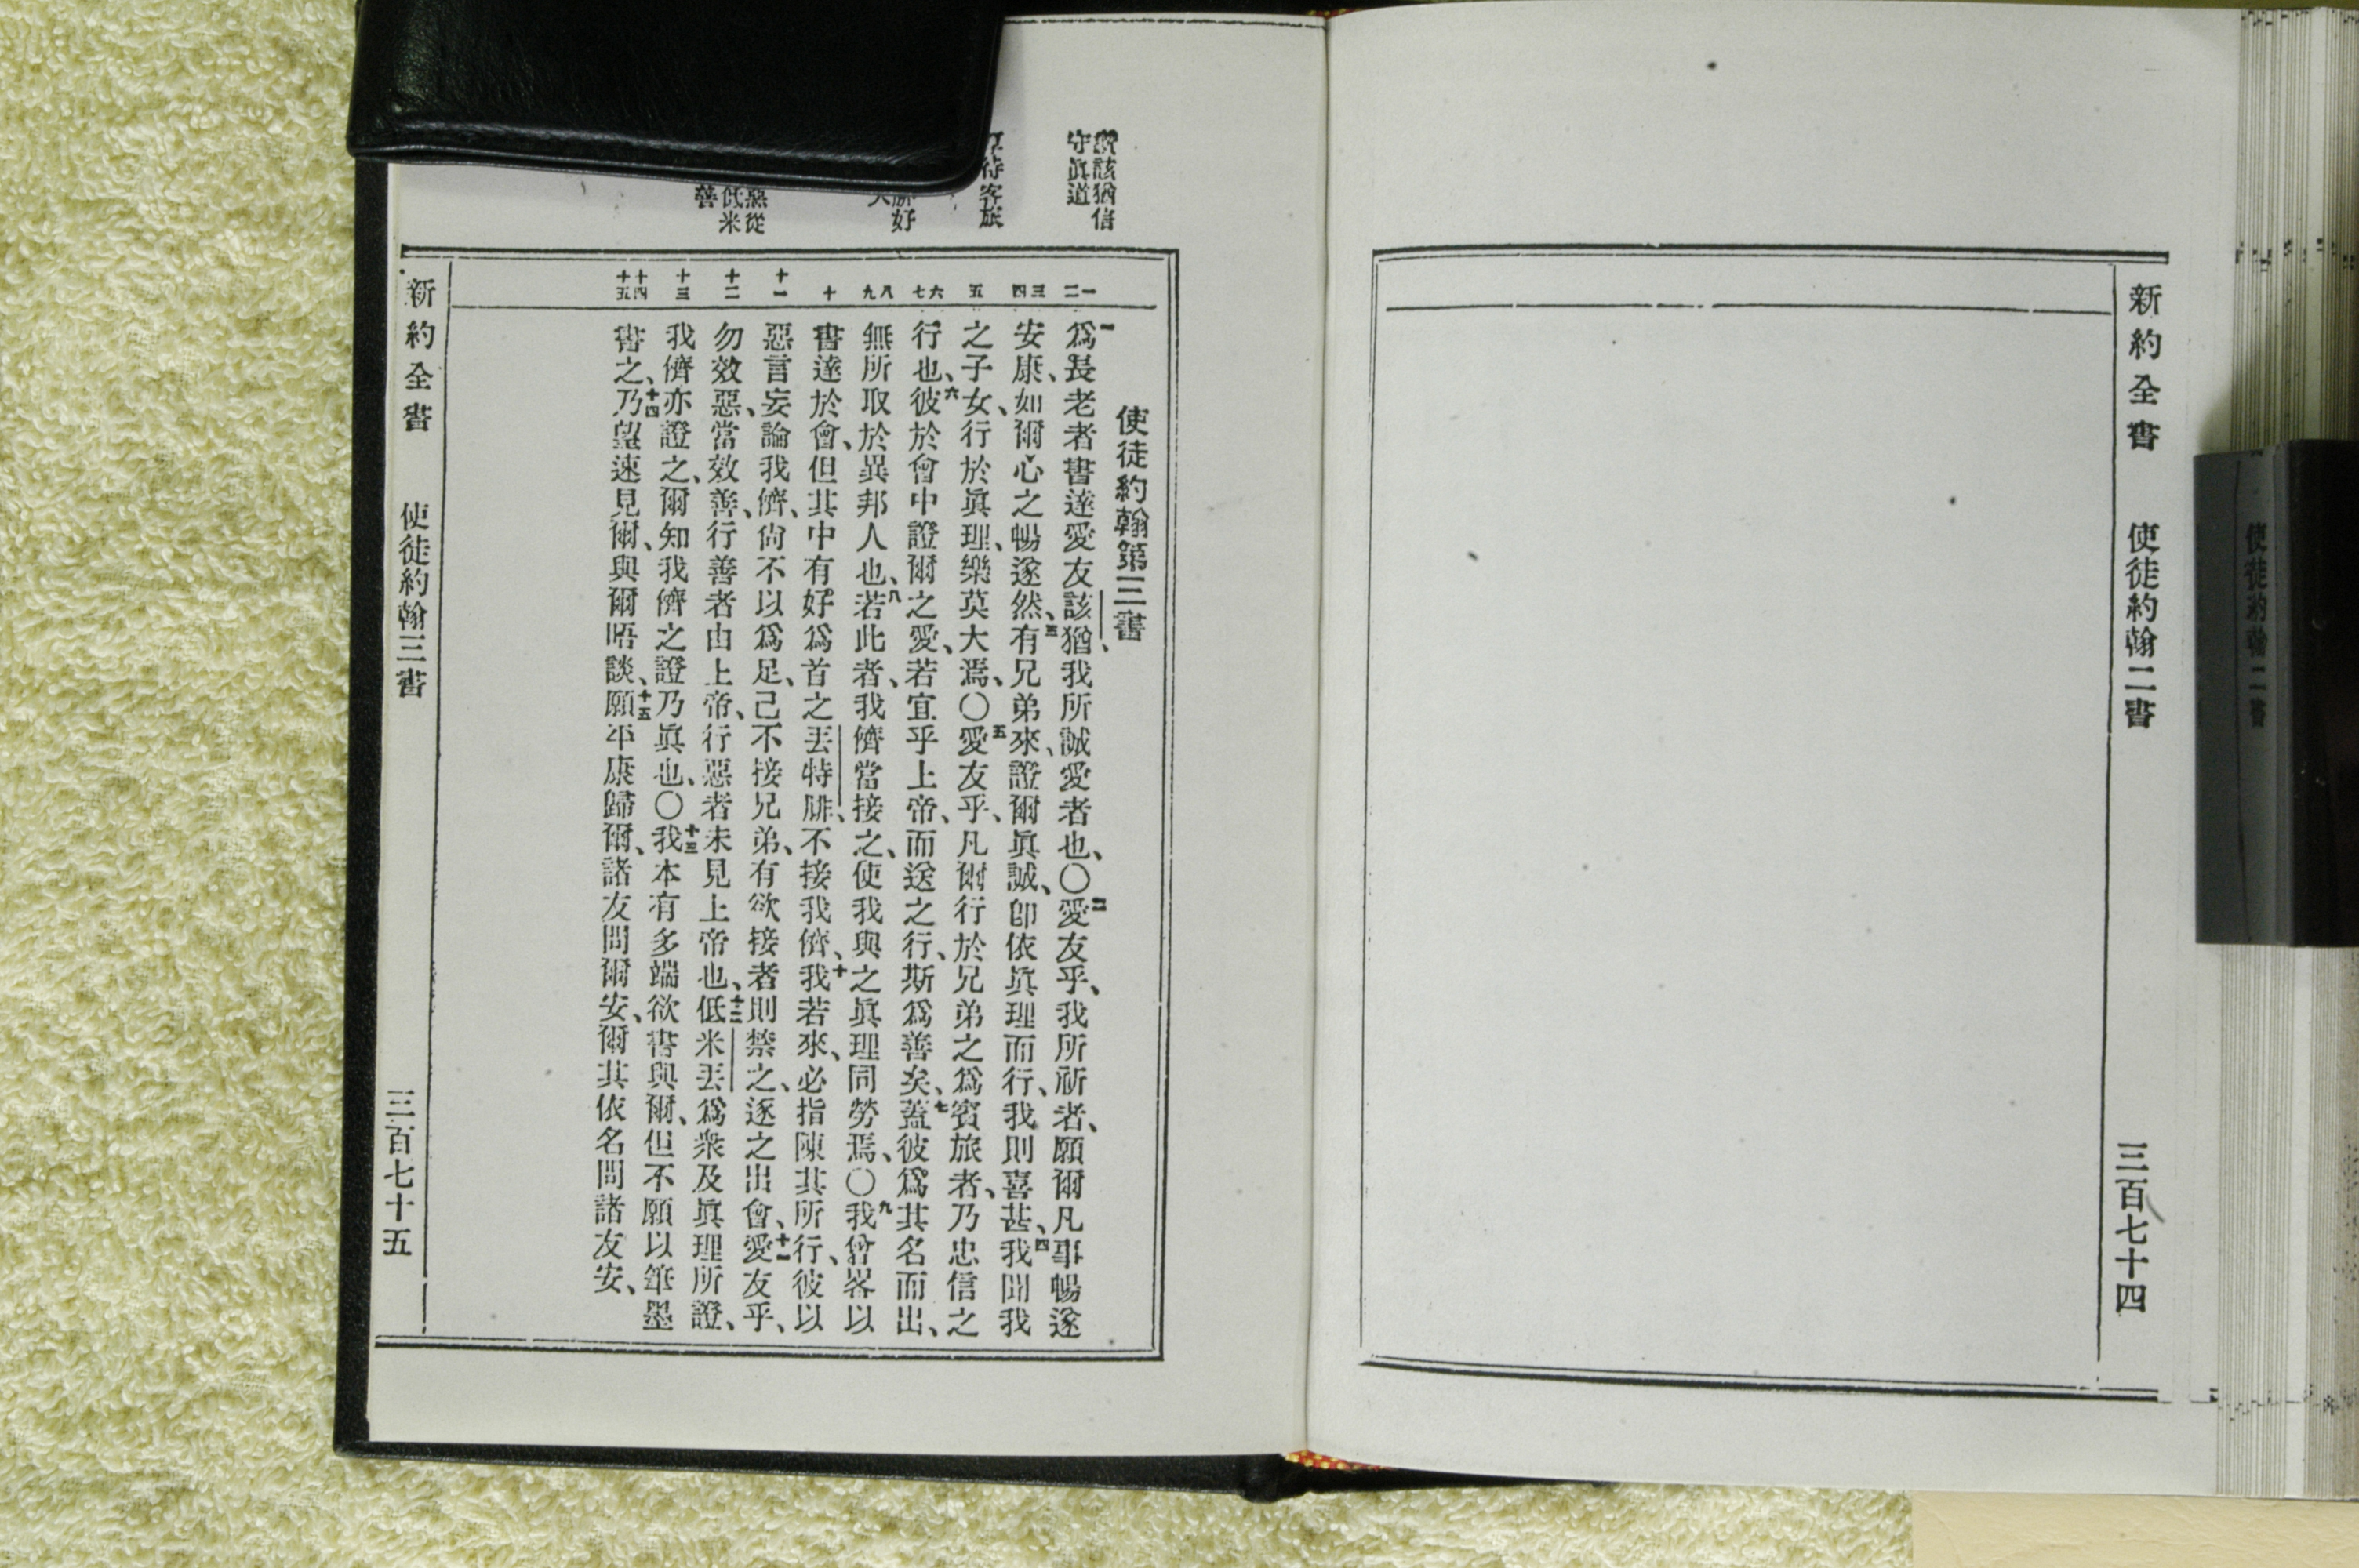 新約全書 使徒約翰二書 三百七十四
使徒約翰二書
該猶信
守眞道
待客旅
好
惡從
低米
善
一
二
三
四
五
六
七
八
九
十
十一
十二
十三
十四
十五
使徒約翰第三書
一爲長老者書達愛友該猶、我所誠愛者也、〇二愛友乎、我所祈者、願爾凡事暢遂
安康、如爾心之暢遂然、三有兄弟來、證爾眞誠、卽依眞理而行、我則喜甚、四我聞我
之子女、行於眞理、樂莫大焉、〇五愛友乎、凡爾行於兄弟之爲賓旅者、乃忠信之
行也、六彼於會中證爾之愛、若宜乎上帝、而送之行、斯爲善矣、七蓋彼爲其名而出、
無所取於異邦人也、八若此者、我儕當接之、使我與之眞理同勞焉、〇九我曾畧以
書達於會、但其中有好爲首之丟特腓、不接我儕、十我若來、必指陳其所行、彼以
惡言妄論我儕、尙不以爲足、己不接兄弟、有欲接者則禁之、逐之出會、十一愛友乎、
勿效惡、當效善、行善者由上帝、行惡者未見上帝也、十二低米丟爲衆及眞理所證、
我儕亦證之、爾知我儕之證乃眞也、〇十三我本有多端欲書與爾、但不願以筆墨
書之、十四乃望速見爾、與爾晤談、十五願平康歸爾、諸友問爾安、爾其依名問諸友安、
新約全書 使徒約翰三書 三百七十五